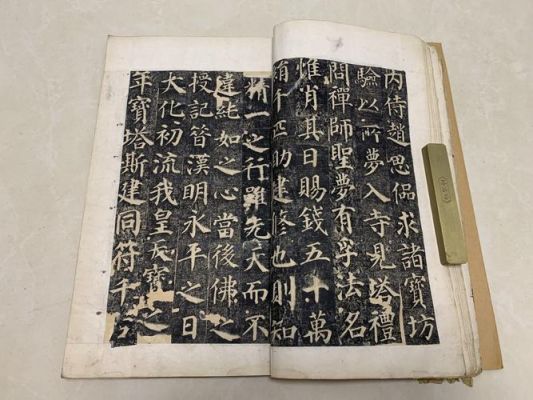 内侍趙思偘求諸寶坊
驗以所夢入寺見塔禮
問禪師聖夢有孚法名
惟肖其日賜錢五十萬
助建修也則知
一之行雖先天而不
違純如之心當後佛之
授記昔漢明永平之日
大化初流我皇天寶之
年寶塔斯建同符千